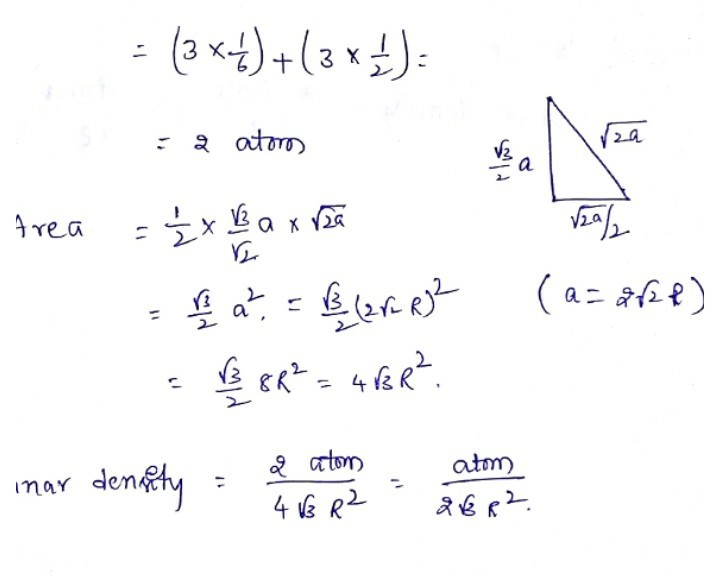 = (3 × 1/6) + (3 × 1/2) =
= 2 atoms
√3/2 a
√2a
√2a/2
Area = 1/2 × √3/√2 a × √2a
= √3/2 a². = √3/2 (2√2 R)² (a = 2√2 R)
= √3/2 8R² = 4√3R².
inar density = 2 atom / 4√3 R² = atom / 2√3 R².